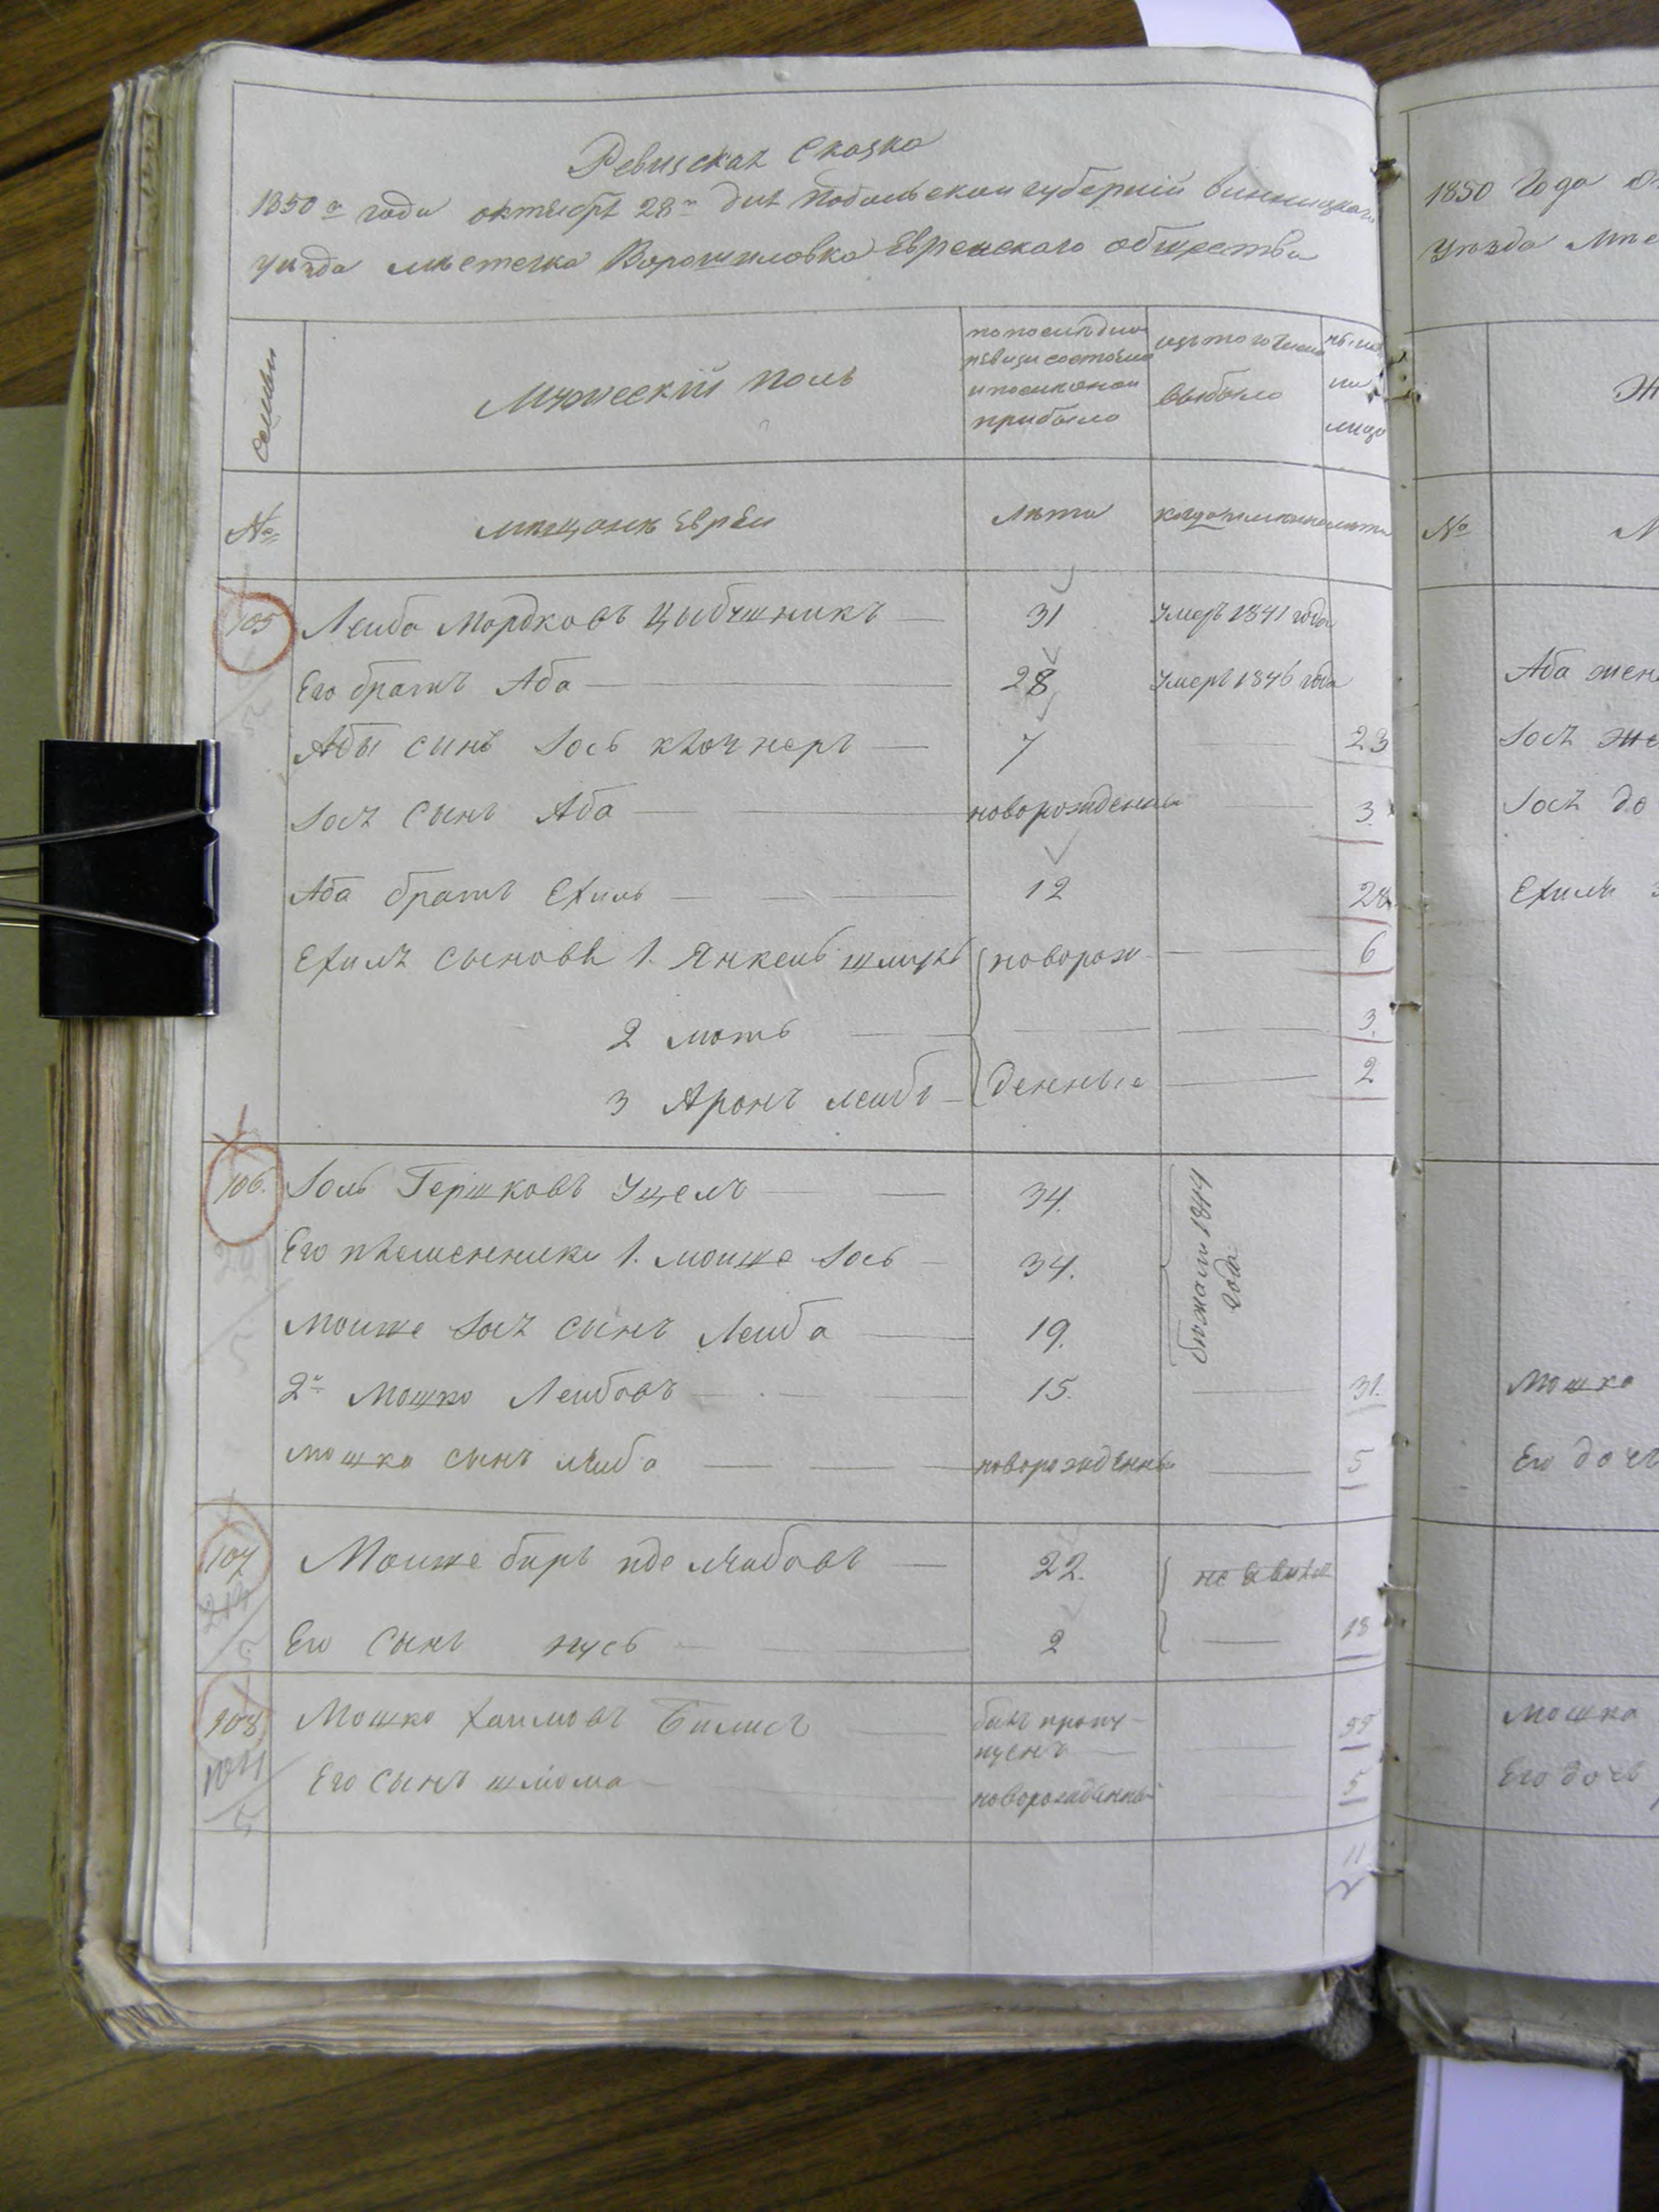 Ревизская Сказка
1850го года октября 28го дня Подольской губерніи Винницкаго
уѣзда мѣстечка Ворошиловка Еврейскаго общества
Семьи
Мужескій полъ
по последней
ревизіи состояло
и после оной
прибыло
изъ того числа
выбыло
ны
лицо
№
мещане Евреи
Лѣта
когда именно
лѣта
105
Лейба Мордковъ Цыбушникъ
31
Умеръ 1841 года
Его братъ Аба
28
Умеръ 1846 года
Абы сынъ Іось
7
23
Іося сынъ Аба
новорожденный
3
Аба братъ Ехиль
12
28
Ехиля сыновя 1. Янкель
новорож
6
2 моть
3
3 Аронъ лейбъ
денные
2
106.
Іоль Гершковъ Ущелъ
34.
бежали 1844
года
Его племенники 1. моише Іось
34.
Моише Іося сынъ Лейба
19.
2й Мошко Лейбовъ
15.
31.
мошка сынъ лейба
новорожденный
5
107
Моише беръ лейбовъ
22.
не
Его сынъ нусь
2
18
108
Мошко Хаимовъ Билисъ
былъ пропу
щенъ
55
Его сынъ шлома
новорожденный
5
11
1850 Года
Уѣзда Мѣс
№
Аба жен
Іося же
Іося до
Ехиля
Мошка
Его доч
Мошка
Его дочь